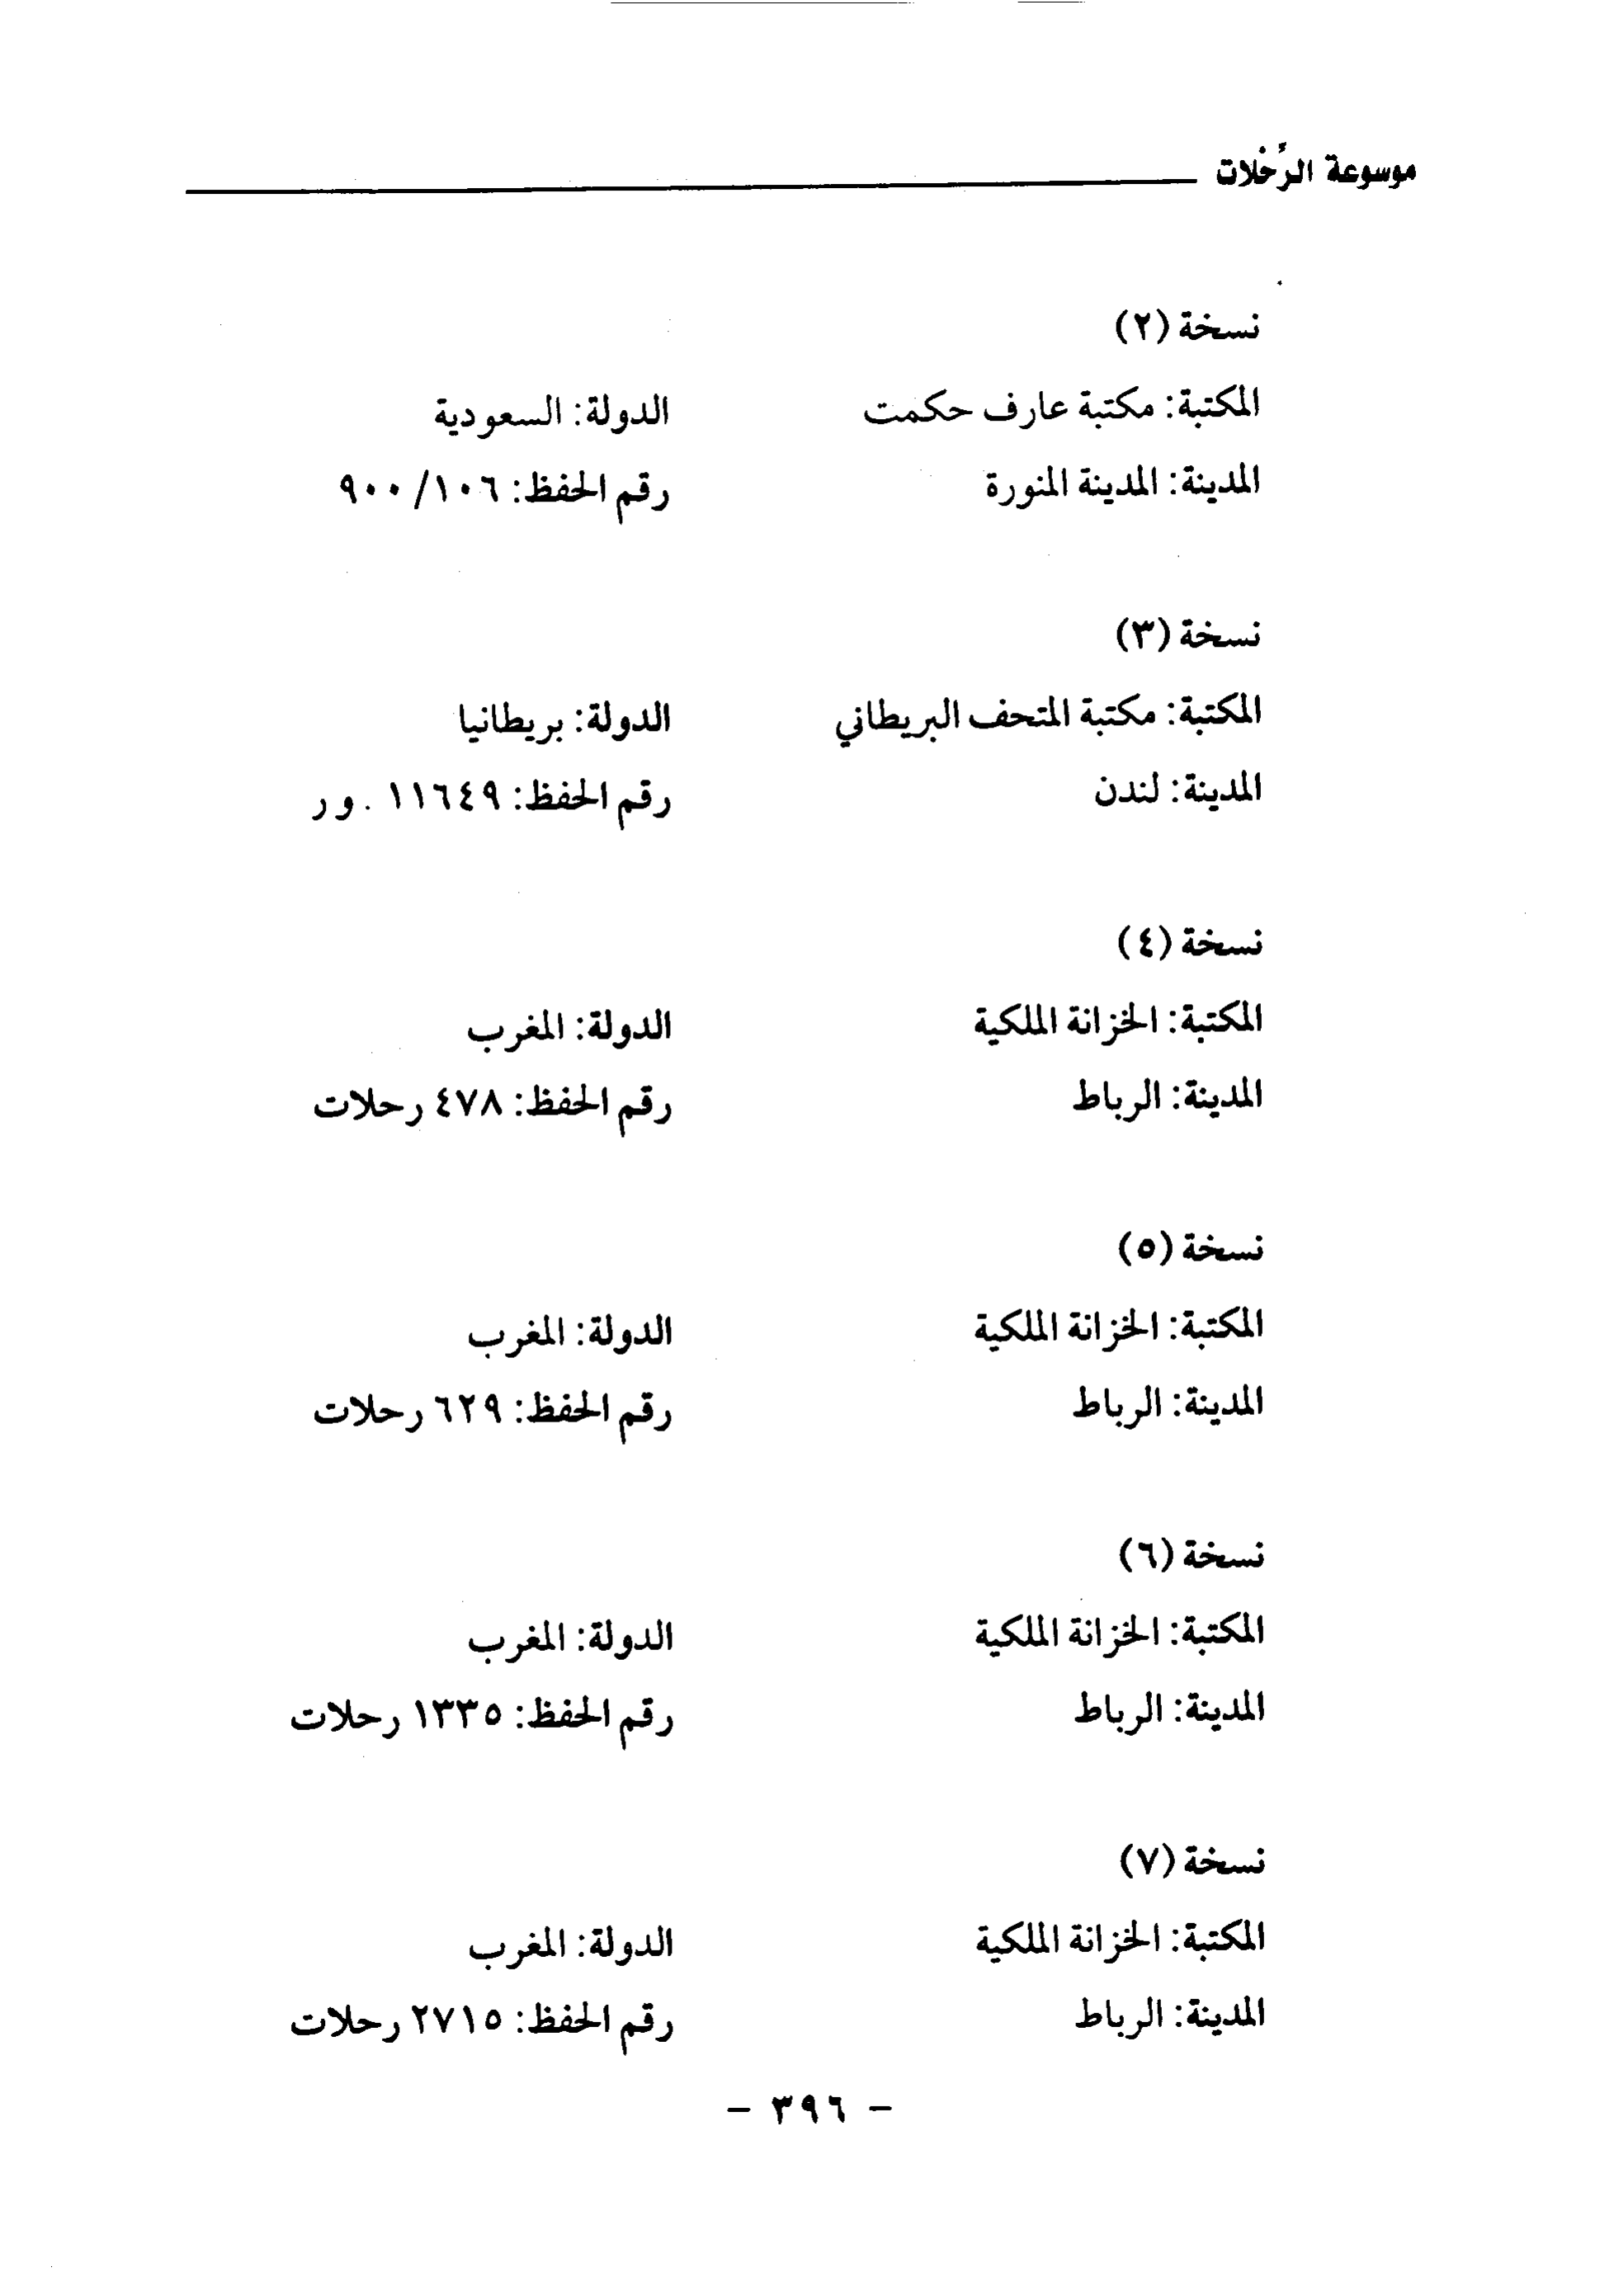 موسوعة الرِّحْلات
نسخة (٢)
المكتبة: مكتبة عارف حكمت الدولة: السعودية
المدينة: المدينة المنورة رقم الحفظ: ٩٠٠/١٠٦
نسخة (٣)
المكتبة: مكتبة المتحف البريطاني الدولة: بريطانيا
المدينة: لندن رقم الحفظ: ١١٦٤٩ .ور
نسخة (٤)
المكتبة: الخزانة الملكية الدولة: المغرب
المدينة: الرباط رقم الحفظ: ٤٧٨ رحلات
نسخة (٥)
المكتبة: الخزانة الملكية الدولة: المغرب
المدينة: الرباط رقم الحفظ: ٦٢٩ رحلات
نسخة (٦)
المكتبة: الخزانة الملكية الدولة: المغرب
المدينة: الرباط رقم الحفظ: ١٣٣٥ رحلات
نسخة (٧)
المكتبة: الخزانة الملكية الدولة: المغرب
المدينة: الرباط رقم الحفظ: ٢٧١٥ رحلات
- ٣٩٦ -